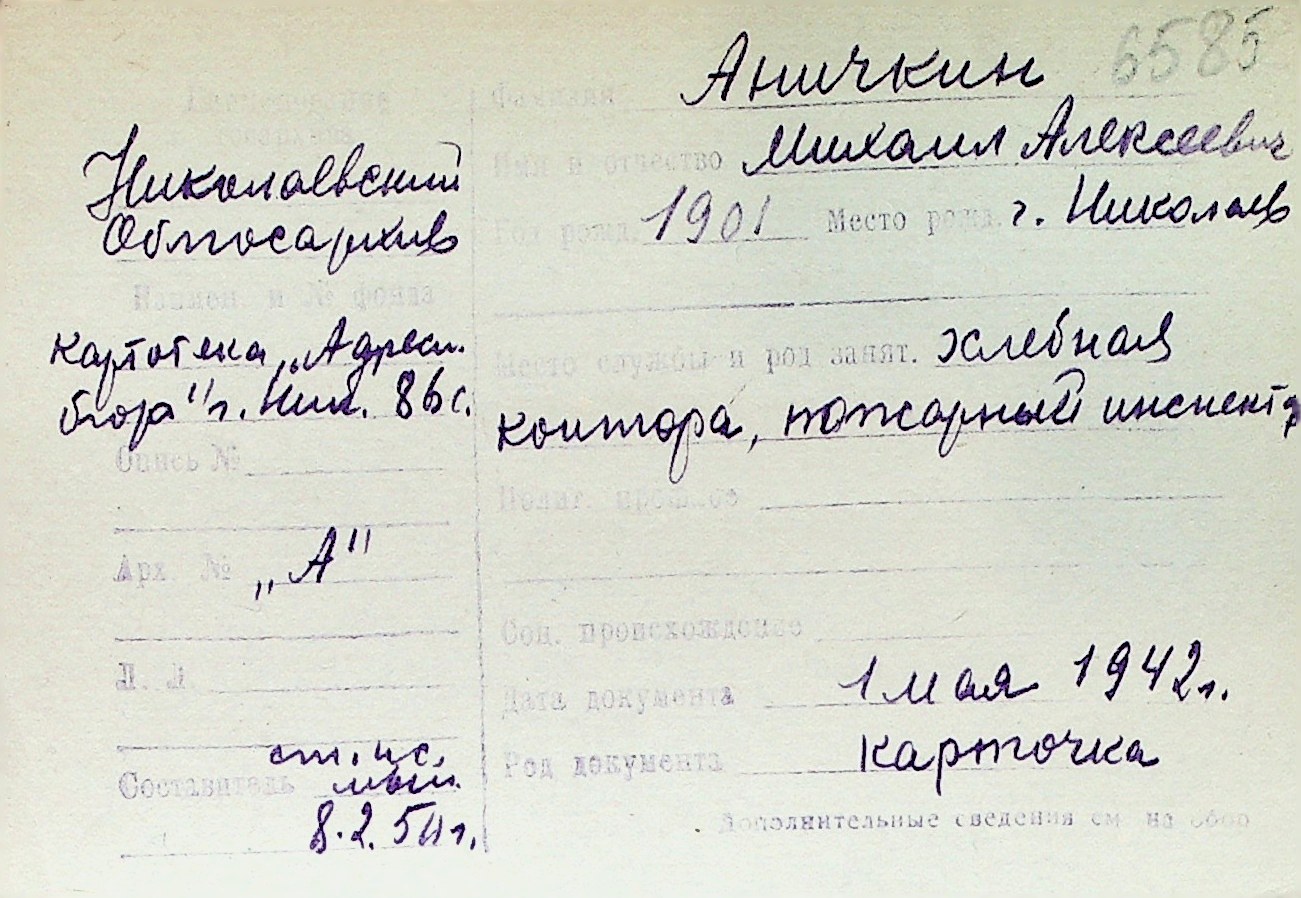 6585
Наименование госархива
Николаевский
Облгосархив
Наимен. и № фонда
картотека „Адресн.
бюро" г. Ник. 86 с.
Опись №
Арх. № „А"
Л. Л.
Составитель
8.2.50 г.
Фамилия Аничкин
Имя и отчество Михаил Алексеевич
Год рожд. 1901 Место рожд. г. Николаев
Место службы и род занят. хлебная
контора, пожарный инспектр
Полит. прошлое
Соц. происхождение
Дата документа 1 мая 1942 г.
Род документа карточка
Дополнительные сведения см на обор